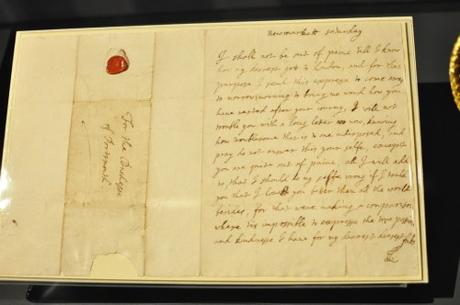 For the Dutchesse
of Portsmouth
newmarkett saturday
I shall not be out of paine till I know
how my dearest gott to London, and for that
purpose I send this expresse to come away
to morrow morning to bring me word how you
have rested after your iourny, I will not
trouble you with a long letter now, knowing
how troublesome that is to one indisposed, and
pray do not answer this your selfe, except
you are quite out of paine, all I will add
is, that I should do my selfe wrong if I tould
you that I love you better then all the world
besides, for that were making a comparison
where tis impossible to expresse the true passion
and kindnesse I have for my dearest dearest fubs